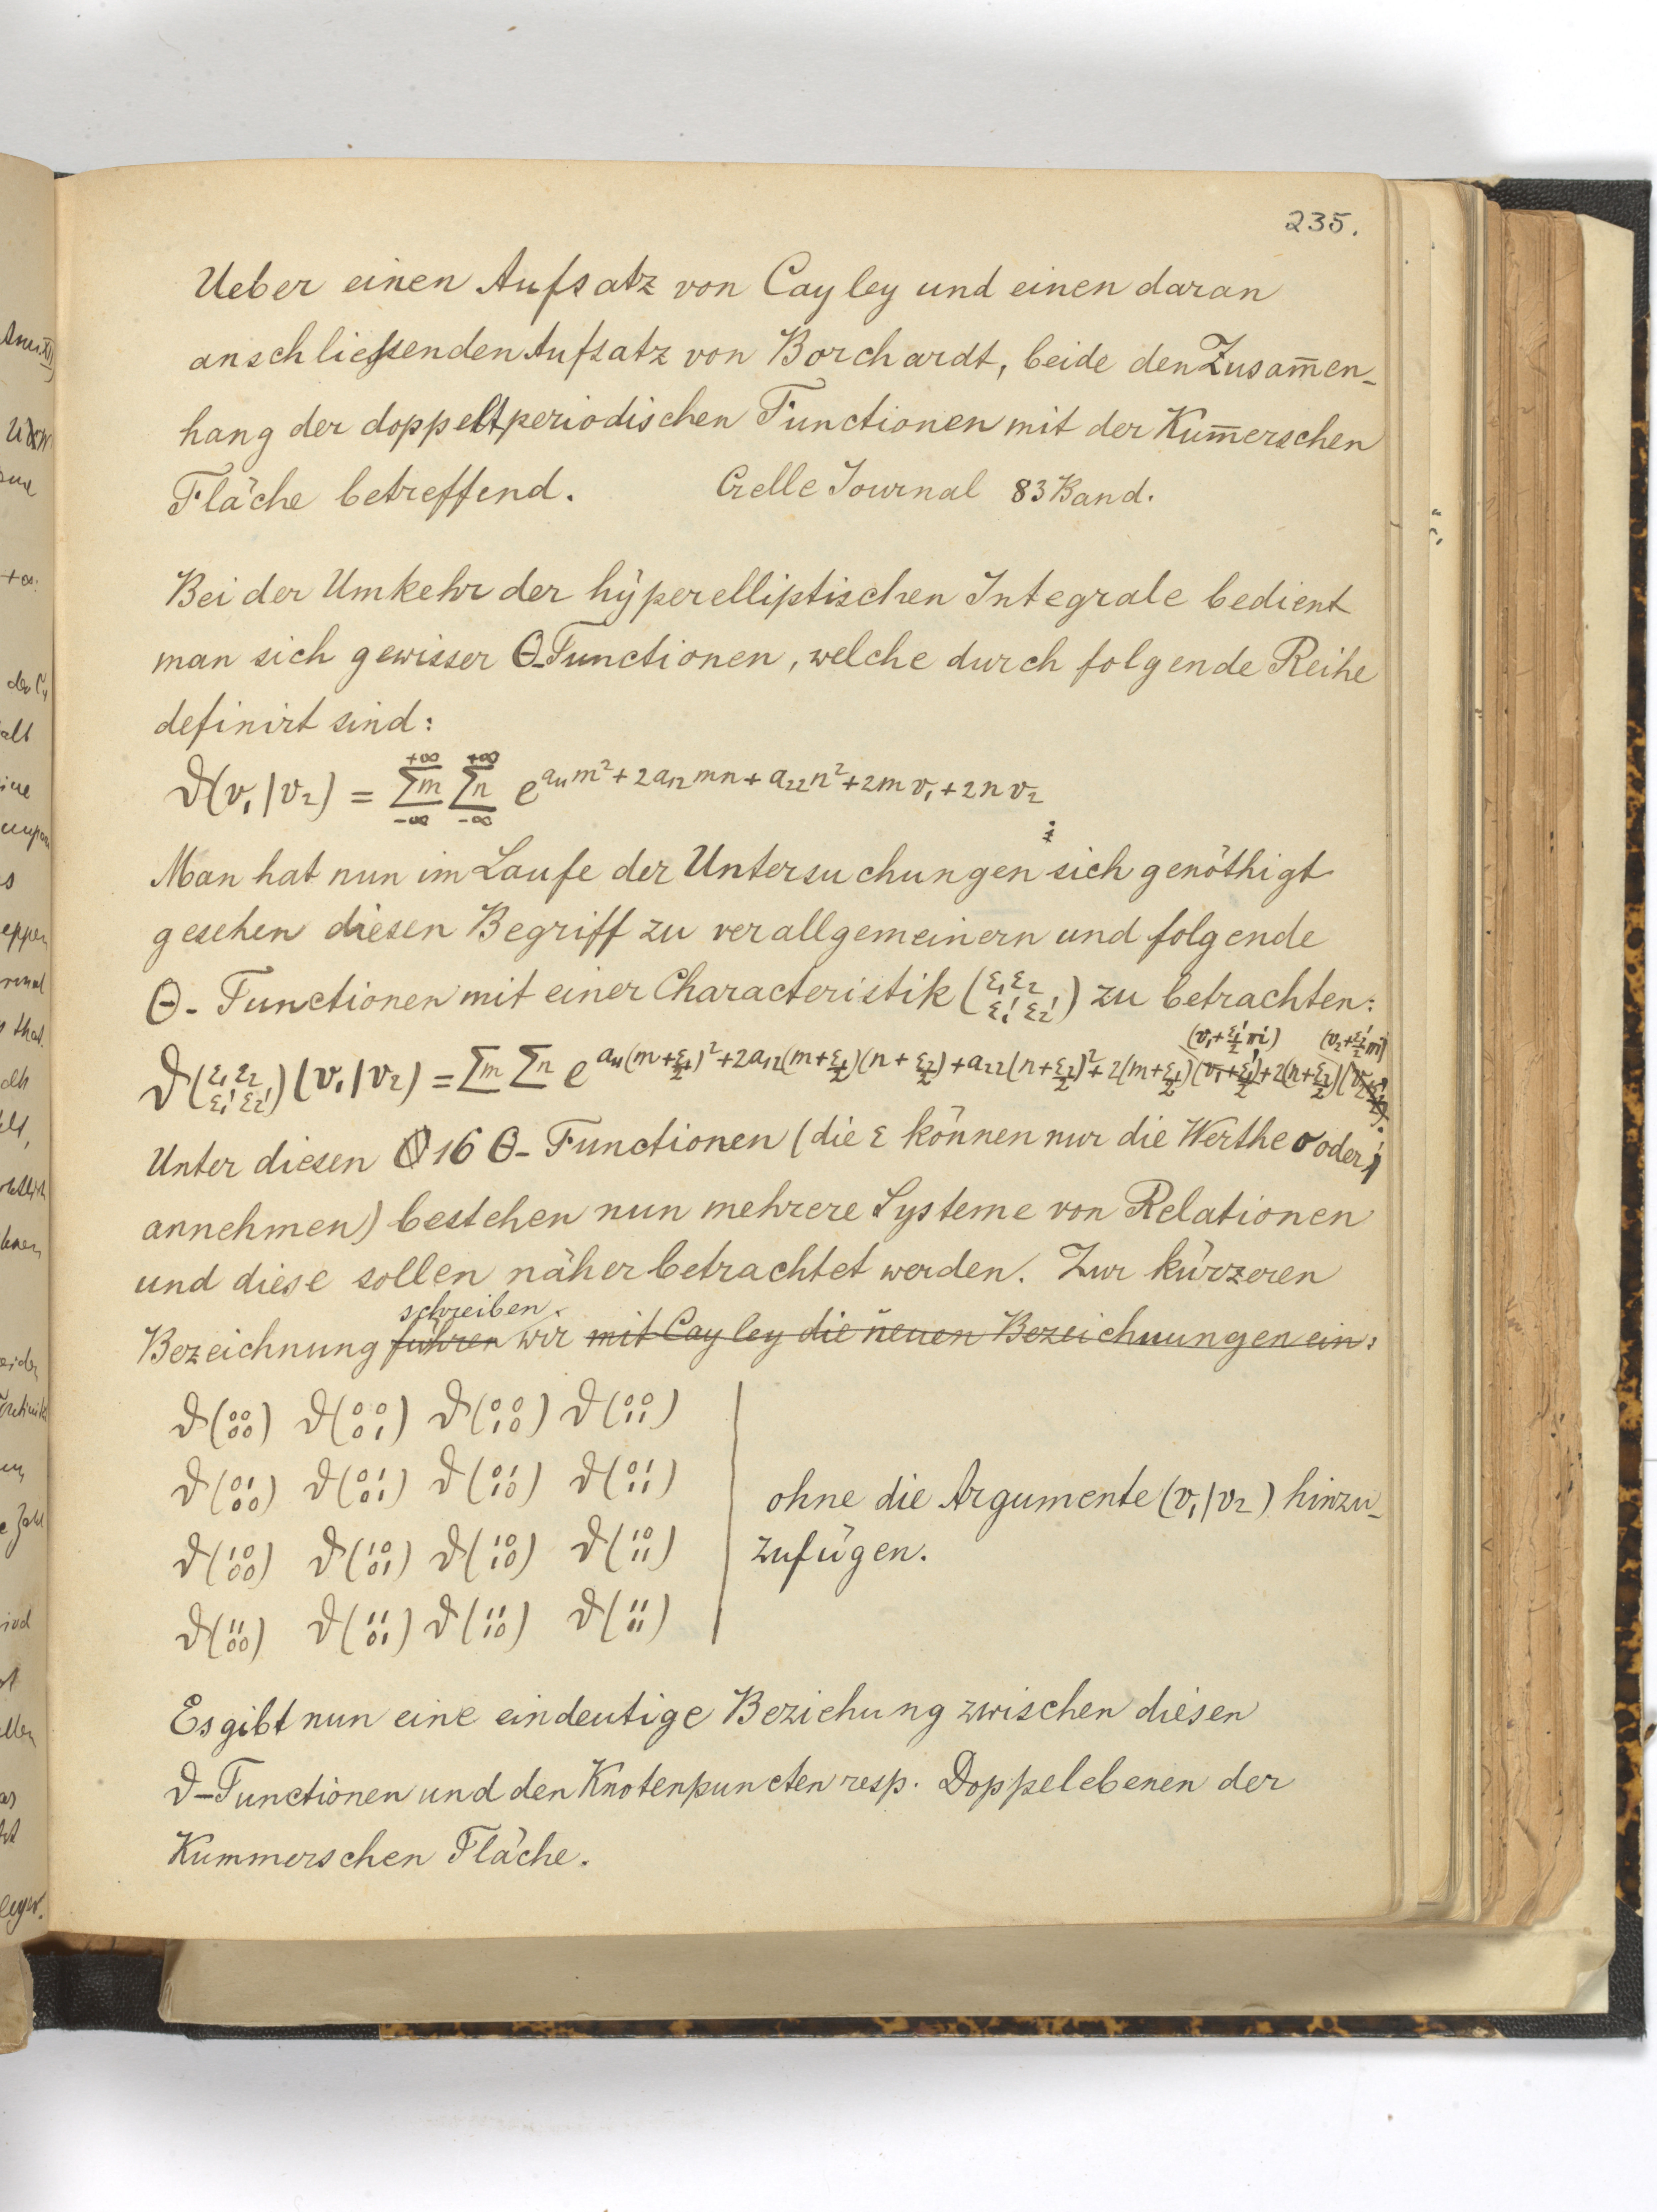 235.
Ueber einen Aufsatz von Cayley und einen daran
anschließenden Aufsatz von Borchardt, beide den Zusam̅en-
hang der doppeltperiodischen Functionen mit der Kum̅erschen
Fläche betreffend. Crelle Journal 83 Band.
Bei der Umkehr der hÿperelliptischen Integrale bedient
man sich gewisser Θ-Functionen, welche durch folgende Reihe
definirt sind:
ϑ(v₁|v₂) = \sum_{-∞}^{+∞}m \sum_{-∞}^{+∞}n e^{a₁₁m²+2a₁₂mn+a₂₂n²+2mv₁+2nv₂}
Man hat nun im Laufe der Untersuchungen sich genöthigt
gesehen diesen Begriff zu verallgemeinern und folgende
Θ-Functionen mit einer Characteristik (ε₁ε₂ / ε₁'ε₂') zu betrachten:
(v₁+ε₁'/2 πi) (v₂+ε₂'/2 πi)
ϑ(ε₁ε₂ / ε₁'ε₂')(v₁|v₂) = Σm Σn e^{a₁₁(m+ε₁/2)²+2a₁₂(m+ε₁/2)(n+ε₂/2)+a₂₂(n+ε₂/2)²+2(m+ε₁/2)(v₁+ε₁'/2)+2(n+ε₂/2)(v₂+ε₂'/2)}
Unter diesen 16 Θ-Functionen (die ε können nur die Werthe 0 oder 1
annehmen) bestehen nun mehrere Systeme von Relationen
und diese sollen näher betrachtet werden. Zur kürzeren
schreiben
Bezeichnung führen wir mit Cayley die neuen Bezeichnungen ein:
ϑ(00/00) ϑ(00/01) ϑ(00/10) ϑ(00/11)
ϑ(01/00) ϑ(01/01) ϑ(01/10) ϑ(01/11)
ohne die Argumente (v₁|v₂) hinzu-
ϑ(10/00) ϑ(10/01) ϑ(10/10) ϑ(10/11)
zufügen.
ϑ(11/00) ϑ(11/01) ϑ(11/10) ϑ(11/11)
Es gibt nun eine eindeutige Beziehung zwischen diesen
ϑ-Functionen und den Knotenpuncten resp. Doppelebenen der
Kummerschen Fläche.